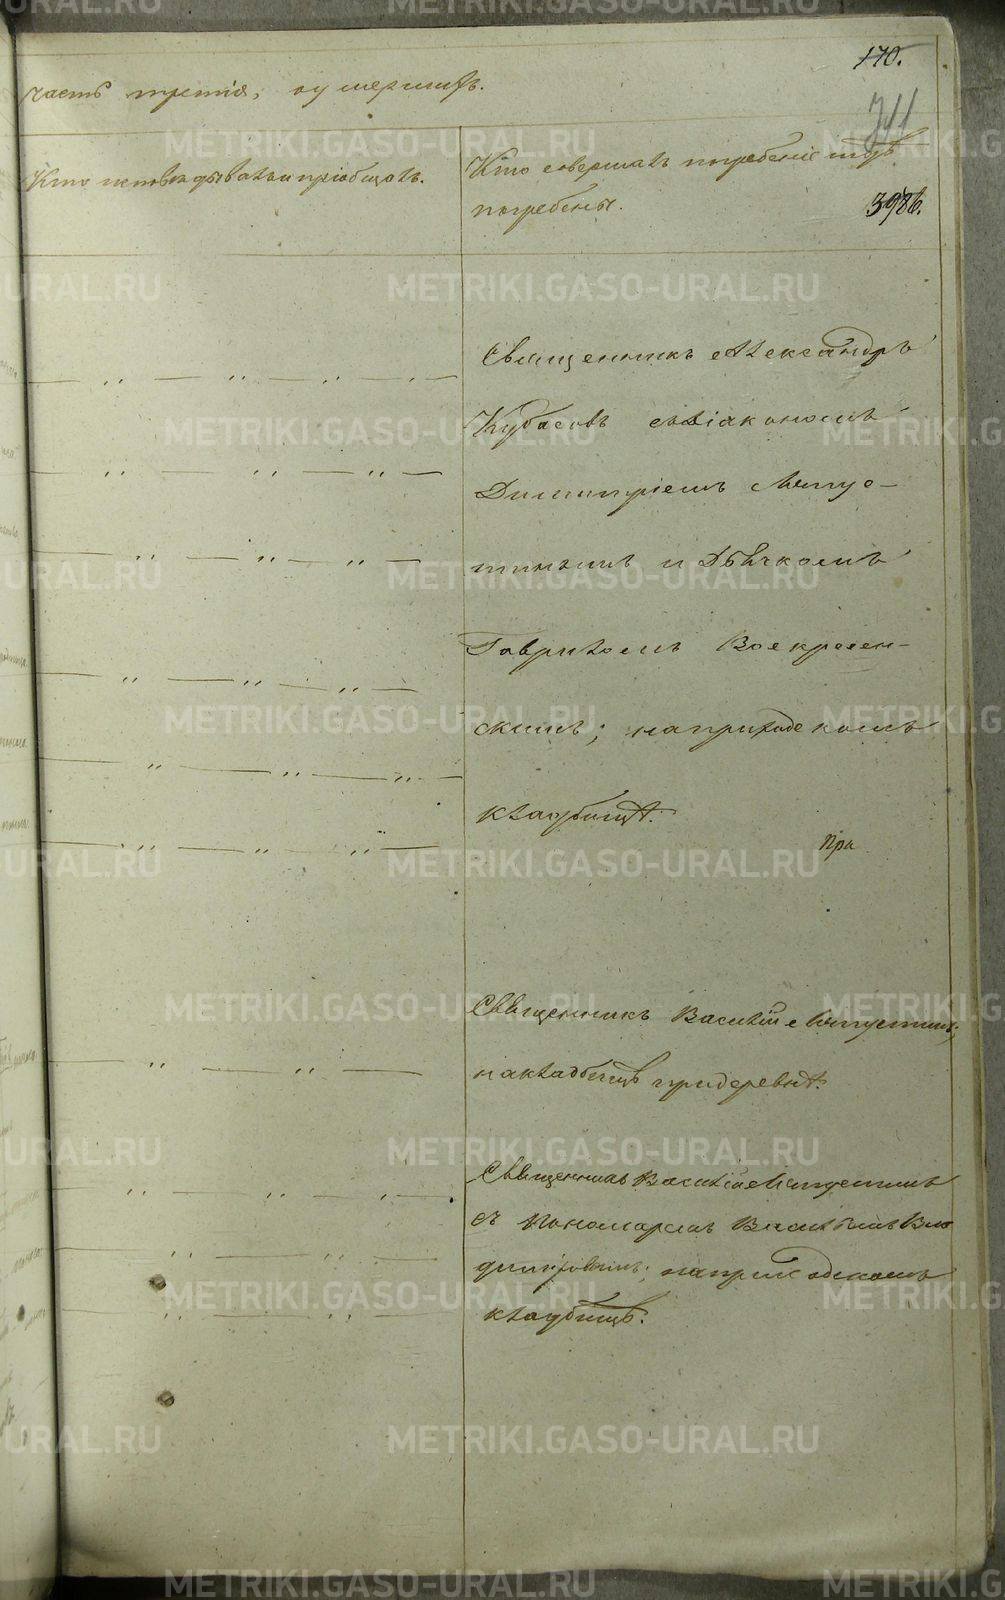 170.
часть третія, объ умершихъ.
711
Кто исповѣдывалъ и пріобщалъ.
Кто совершалъ погребеніе и гдѣ
погребены.
398б.
Священникъ Александръ
Кубасовъ съ Діакономъ
Димитріемъ Лепус-
тинымъ и Дьячкомъ
Гавриломъ Воскресен-
скимъ; на приходскомъ
кладбищѣ.
При
Священникъ Василій Лепустинъ;
на кладбищѣ при деревнѣ.
Священникъ Василій Лепустинъ
съ Пономаремъ Васильемъ Вла
диміровымъ; на приходскомъ
кладбищѣ.
METRIKI.GASO-URAL.RU